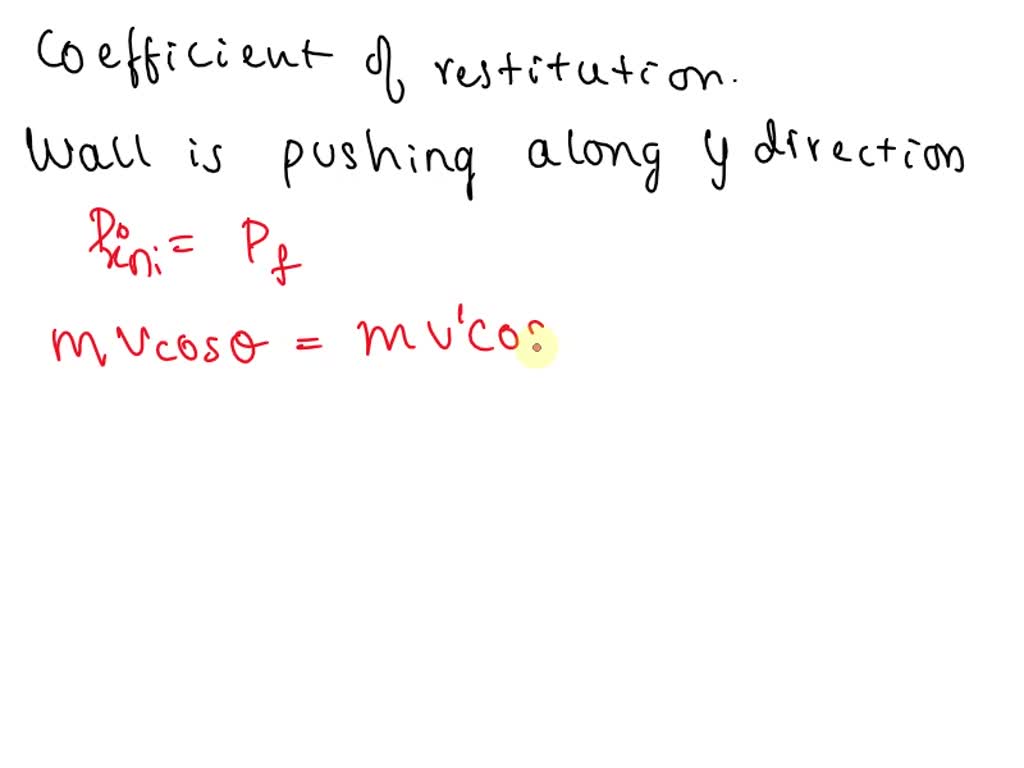 Coefficient of restitution.
Wall is pushing along y direction
= Pf
mvcosθ = mv'cos